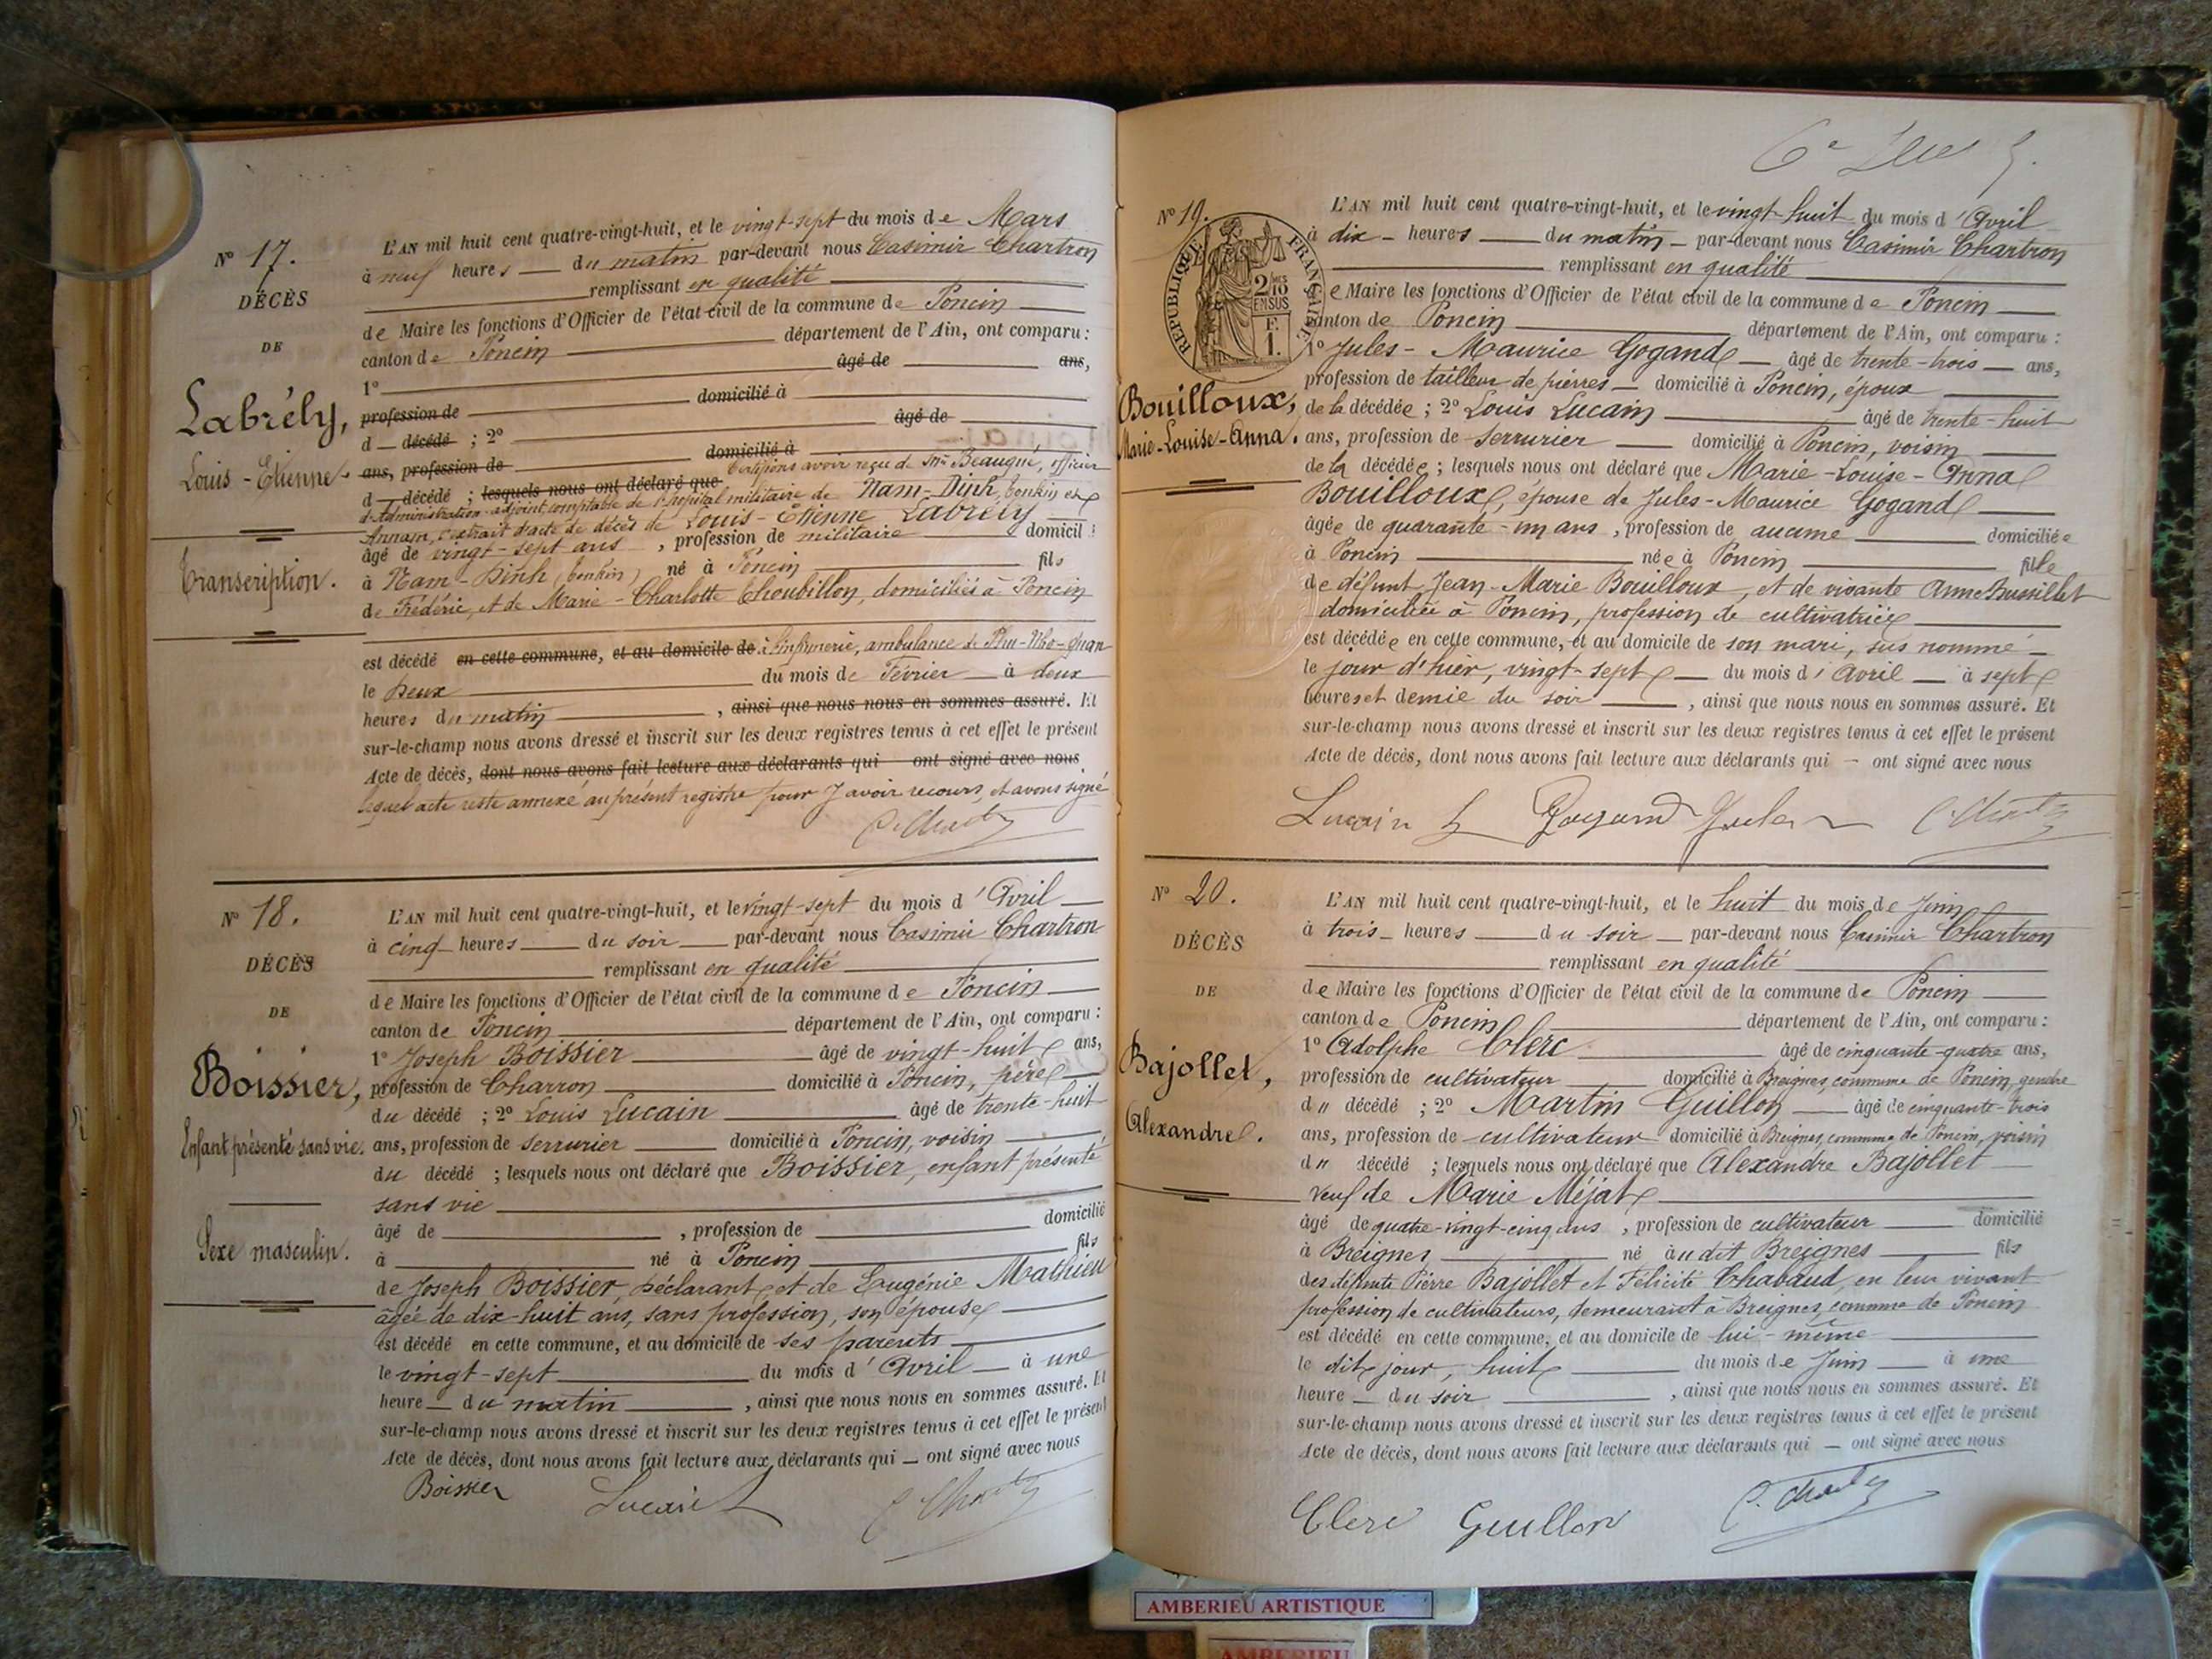 Nº 17.
DÉCÈS
DE
Labrély,
Louis-Etienne
Transcription.
L'AN mil huit cent quatre-vingt-huit, et le vingt-sept du mois de Mars
à neuf heures du matin par-devant nous Casimir Chartron
remplissant en qualité
de Maire les fonctions d'Officier de l'état civil de la commune de Poncin
canton de Poncin département de l'Ain, ont comparu :
1º âgé de ans,
profession de domicilié à
d décédé ; 2º âgé de
ans, profession de domicilié à
d décédé ; lesquels nous ont déclaré que Certifions avoir reçu de Mr Beaugué, officier
d'Administration adjoint comptable de l'hôpital militaire de Nam-Dinh, Tonkin et
Annam, extrait d'acte de décès de Louis-Etienne Labrély
âgé de vingt-sept ans , profession de militaire domicil
à Nam-Dinh (Tonkin) né à Poncin fils
de Frédéric, et de Marie-Charlotte Choubillon, domiciliés à Poncin
est décédé en cette commune, et au domicile de à l'infirmerie, ambulance de Phu-Nho-Quan
le Deux du mois de Février à deux
heures du matin , ainsi que nous nous en sommes assuré. Et
sur-le-champ nous avons dressé et inscrit sur les deux registres tenus à cet effet le présent
Acte de décès, dont nous avons fait lecture aux déclarants qui ont signé avec nous
lequel acte reste annexé au présent registre pour y avoir recours, et avons signé
Nº 18.
DÉCÈS
DE
Boissier,
Enfant présenté sans vie.
Sexe masculin.
L'AN mil huit cent quatre-vingt-huit, et le vingt-sept du mois d'Avril
à cinq heures du soir par-devant nous Casimir Chartron
remplissant en qualité
de Maire les fonctions d'Officier de l'état civil de la commune de Poncin
canton de Poncin département de l'Ain, ont comparu :
1º Joseph Boissier âgé de vingt-huit ans,
profession de Charron domicilié à Poncin, père
du décédé ; 2º Louis Lucain âgé de trente-huit
ans, profession de serrurier domicilié à Poncin, voisin
du décédé ; lesquels nous ont déclaré que Boissier, enfant présenté
sans vie
âgé de , profession de domicilié
à né à Poncin fils
de Joseph Boissier, déclarant, et de Eugénie Mathieu
âgée de dix-huit ans, sans profession, son épouse
est décédé en cette commune, et au domicile de ses parents
le vingt-sept du mois d'Avril à une
heure du matin , ainsi que nous nous en sommes assuré. Et
sur-le-champ nous avons dressé et inscrit sur les deux registres tenus à cet effet le présent
Acte de décès, dont nous avons fait lecture aux déclarants qui ont signé avec nous
Boissier Lucain
Nº 19.
RÉPUBLIQUE FRANÇAISE
2/10 EN SUS
F.
1.
Bouilloux,
Marie-Louise-Anna.
L'AN mil huit cent quatre-vingt-huit, et le vingt-huit du mois d'Avril
à dix heures du matin par-devant nous Casimir Chartron
remplissant en qualité
e Maire les fonctions d'Officier de l'état civil de la commune de Poncin
canton de Poncin département de l'Ain, ont comparu :
1º Jules-Maurice Gogand âgé de trente-trois ans,
profession de tailleur de pierres domicilié à Poncin, époux
de la décédée ; 2º Louis Lucain âgé de trente-huit
ans, profession de serrurier domicilié à Poncin, voisin
de la décédée ; lesquels nous ont déclaré que Marie-Louise-Anna
Bouilloux, épouse de Jules-Maurice Gogand
âgée de quarante-un ans , profession de aucune domiciliée
à Poncin née à Poncin fille
de défunt Jean-Marie Bouilloux, et de vivante Anne Bussillet
domiciliée à Poncin, profession de cultivatrice
est décédée en cette commune, et au domicile de son mari, sus nommé
le jour d'hier, vingt-sept du mois d'Avril à sept
heures et demie du soir , ainsi que nous nous en sommes assuré. Et
sur-le-champ nous avons dressé et inscrit sur les deux registres tenus à cet effet le présent
Acte de décès, dont nous avons fait lecture aux déclarants qui ont signé avec nous
Lucain L Gogand Jules
Nº 20.
DÉCÈS
DE
Bajollet,
Alexandre.
L'AN mil huit cent quatre-vingt-huit, et le huit du mois de Juin
à trois heures du soir par-devant nous Casimir Chartron
remplissant en qualité
de Maire les fonctions d'Officier de l'état civil de la commune de Poncin
canton de Poncin département de l'Ain, ont comparu :
1º Adolphe Clerc âgé de cinquante-quatre ans,
profession de cultivateur domicilié à Breignes, commune de Poncin, gendre
du décédé ; 2º Martin Guillon âgé de cinquante-trois
ans, profession de cultivateur domicilié à Breignes, commune de Poncin, voisin
du décédé ; lesquels nous ont déclaré que Alexandre Bajollet
veuf de Marie Méjat
âgé de quatre-vingt-cinq ans , profession de cultivateur domicilié
à Breignes né au dit Breignes fils
des défunts Pierre Bajollet et Félicité Chabaud, en leur vivant
profession de cultivateurs, demeurant à Breignes, commune de Poncin
est décédé en cette commune, et au domicile de lui-même
le dit jour, huit du mois de Juin à une
heure du soir , ainsi que nous nous en sommes assuré. Et
sur-le-champ nous avons dressé et inscrit sur les deux registres tenus à cet effet le présent
Acte de décès, dont nous avons fait lecture aux déclarants qui ont signé avec nous
Clerc Guillon
AMBERIEU ARTISTIQUE
AMBERIEU